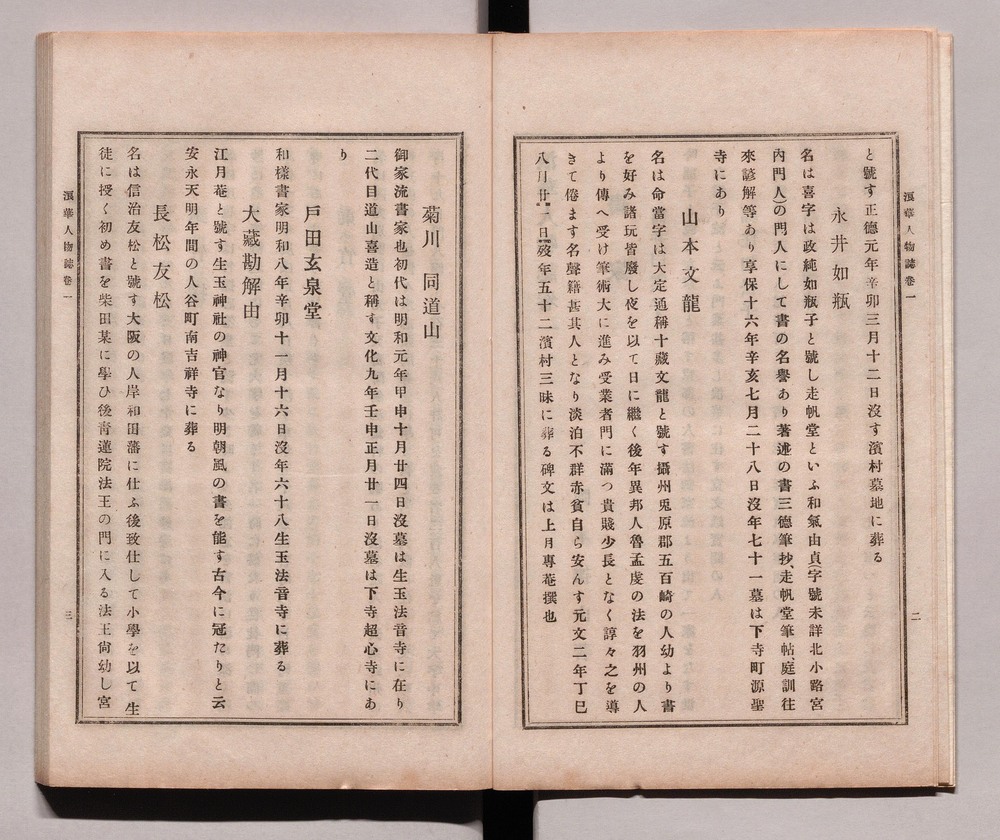 浪華人物誌卷一
二
と號す正德元年辛卯三月十二日沒す濱村墓地に葬る
永井如瓶
名は喜字は政純如瓶子と號し走帆堂といふ和氣由貞(字號未詳北小路宮
內門人)の門人にして書の名譽あり著述の書三德筆抄、走帆堂筆帖、庭訓往
來諺解等あり享保十六年辛亥七月二十八日沒年七十一墓は下寺町源聖
寺にあり
山本文龍
名は命當字は大定通稱十藏文龍と號す攝州兎原郡五百崎の人幼より書
を好み諸玩皆廢し夜を以て日に繼く後年異邦人魯孟虔の法を羽州の人
より傳へ受け筆術大に進み受業者門に滿つ貴賤少長となく諄々之を導
きて倦ます名聲籍甚其人となり淡泊不群赤貧自ら安んす元文二年丁巳
八月廿一日歿年五十二濱村三昧に葬る碑文は上月專菴撰也
菊川同道山
御家流書家也初代は明和元年甲申十月廿四日沒墓は生玉法音寺に在り
二代目道山喜造と稱す文化九年壬申正月廿一日沒墓は下寺超心寺にあ
り
戶田玄泉堂
和樣書家明和八年辛卯十一月十六日沒年六十八生玉法音寺に葬る
大藏勘解由
江月菴と號す生玉神社の神官なり明朝風の書を能す古今に冠たりと云
安永天明年間の人谷町南吉祥寺に葬る
長松友松
名は信治友松と號す大阪の人岸和田藩に仕ふ後致仕して小學を以て生
徒に授く初め書を柴田某に學ひ後靑蓮院法王の門に入る法王尙幼し宮
浪華人物誌卷一
三